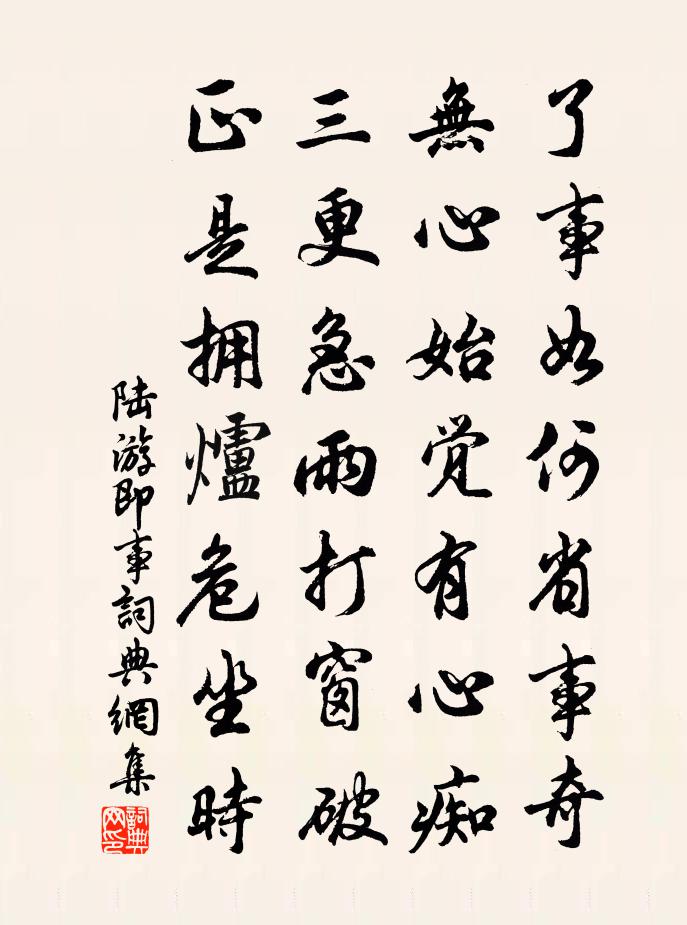 了事如何省事奇
無心始觉有心痴
三更急雨打窗破
正是拥爐危坐時
陆游即事詞典網集
詞典
网印